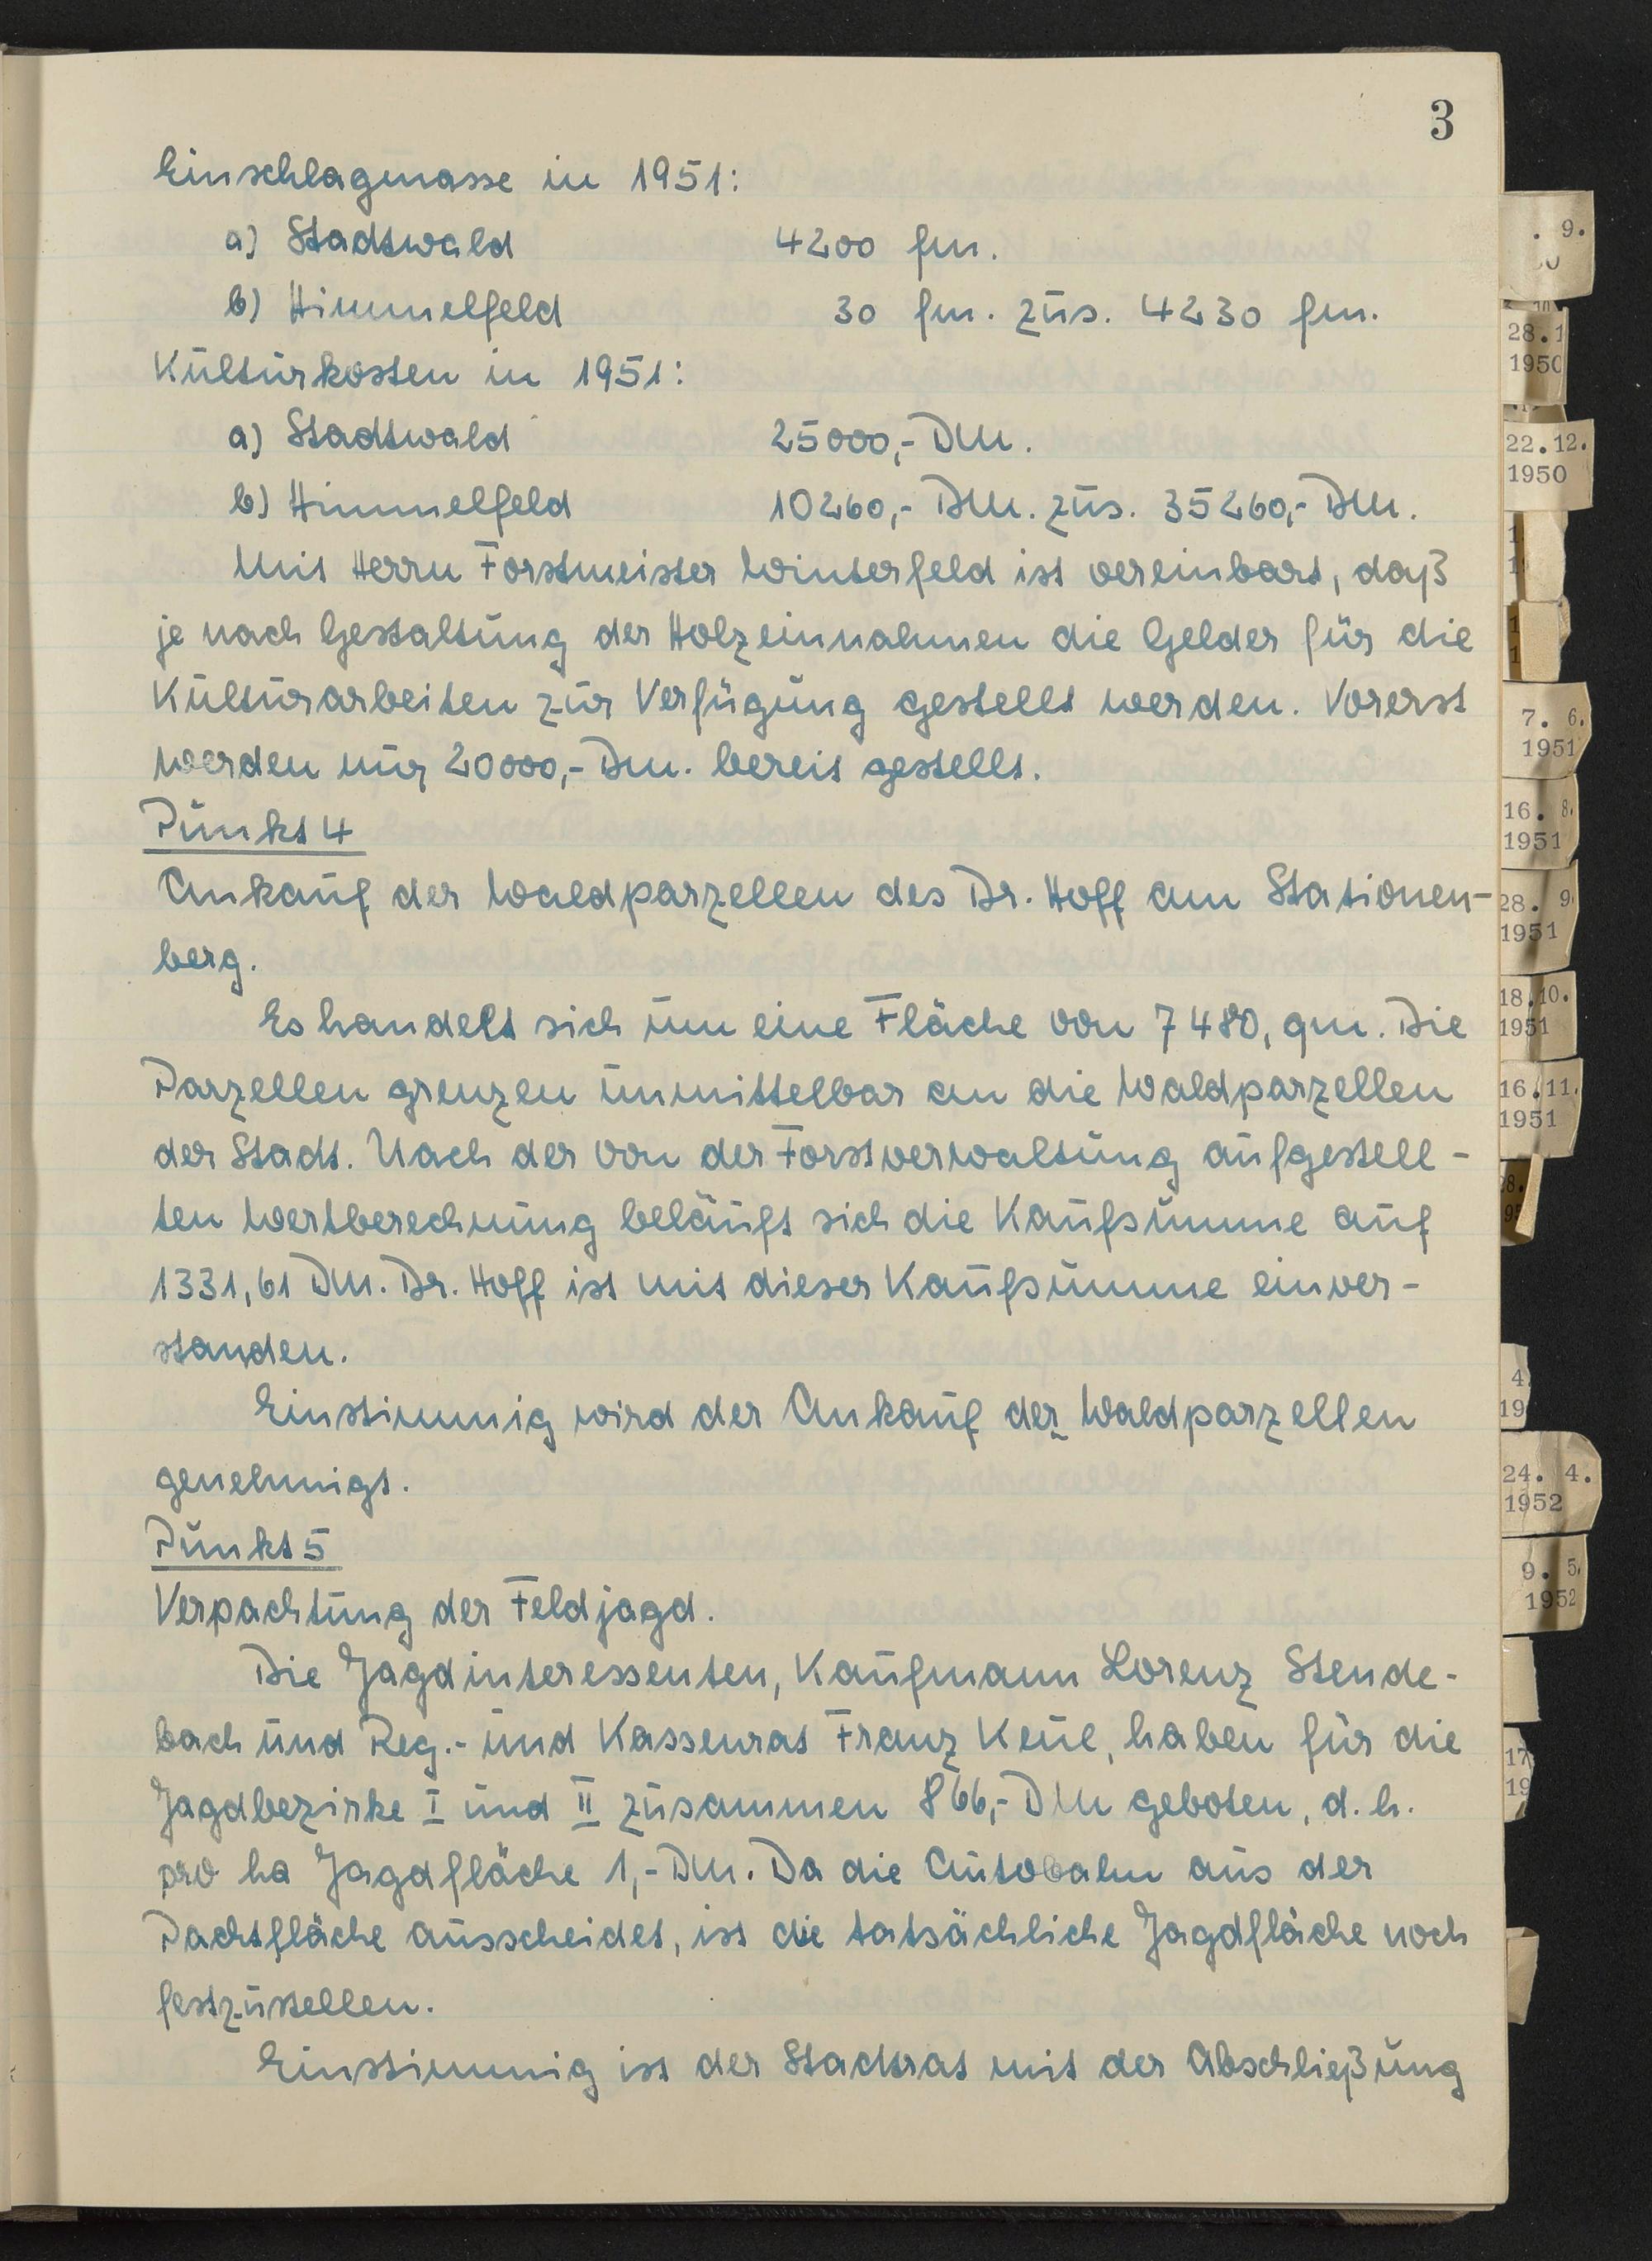 3
Einschlagmasse in 1951:
a) Stadtwald 4200 fm.
b) Himmelfeld 30 fm. zus. 4230 fm.
Kulturkosten in 1951:
a) Stadtwald 25000,- DM.
b) Himmelfeld 10260,- DM. zus. 35260,- DM.
Mit Herrn Forstmeister Winterfeld ist vereinbart, daß
je nach Gestaltung der Holzeinnahmen die Gelder für die
Kulturarbeiten zur Verfügung gestellt werden. Vorerst
werden nur 20000,- DM. bereit gestellt.
Punkt 4
Ankauf der Waldparzellen des Dr. Hoff am Stationen-
berg.
Es handelt sich um eine Fläche von 7480, qm. Die
Parzellen grenzen unmittelbar an die Waldparzellen
der Stadt. Nach der von der Forstverwaltung aufgestell-
ten Wertberechnung beläuft sich die Kaufsumme auf
1331,61 DM. Dr. Hoff ist mit dieser Kaufsumme einver-
standen.
Einstimmig wird der Ankauf der Waldparzellen
genehmigt.
Punkt 5
Verpachtung der Feldjagd.
Die Jagdinteressenten, Kaufmann Lorenz Stende-
bach und Reg.- und Kassenrat Franz Keul, haben für die
Jagdbezirke I und II zusammen 866,- DM geboten, d. h.
pro ha Jagdfläche 1,- DM. Da die Autobahn aus der
Pachtfläche ausscheidet, ist die tatsächliche Jagdfläche noch
festzustellen.
Einstimmig ist der Stadtrat mit der Abschließung
. 9.
28.1
1950
22.12.
1950
7. 6.
1951
16. 8.
1951
28. 9
1951
18.10.
1951
16.11.
1951
4
19
24. 4.
1952
9. 5.
1952
17
19